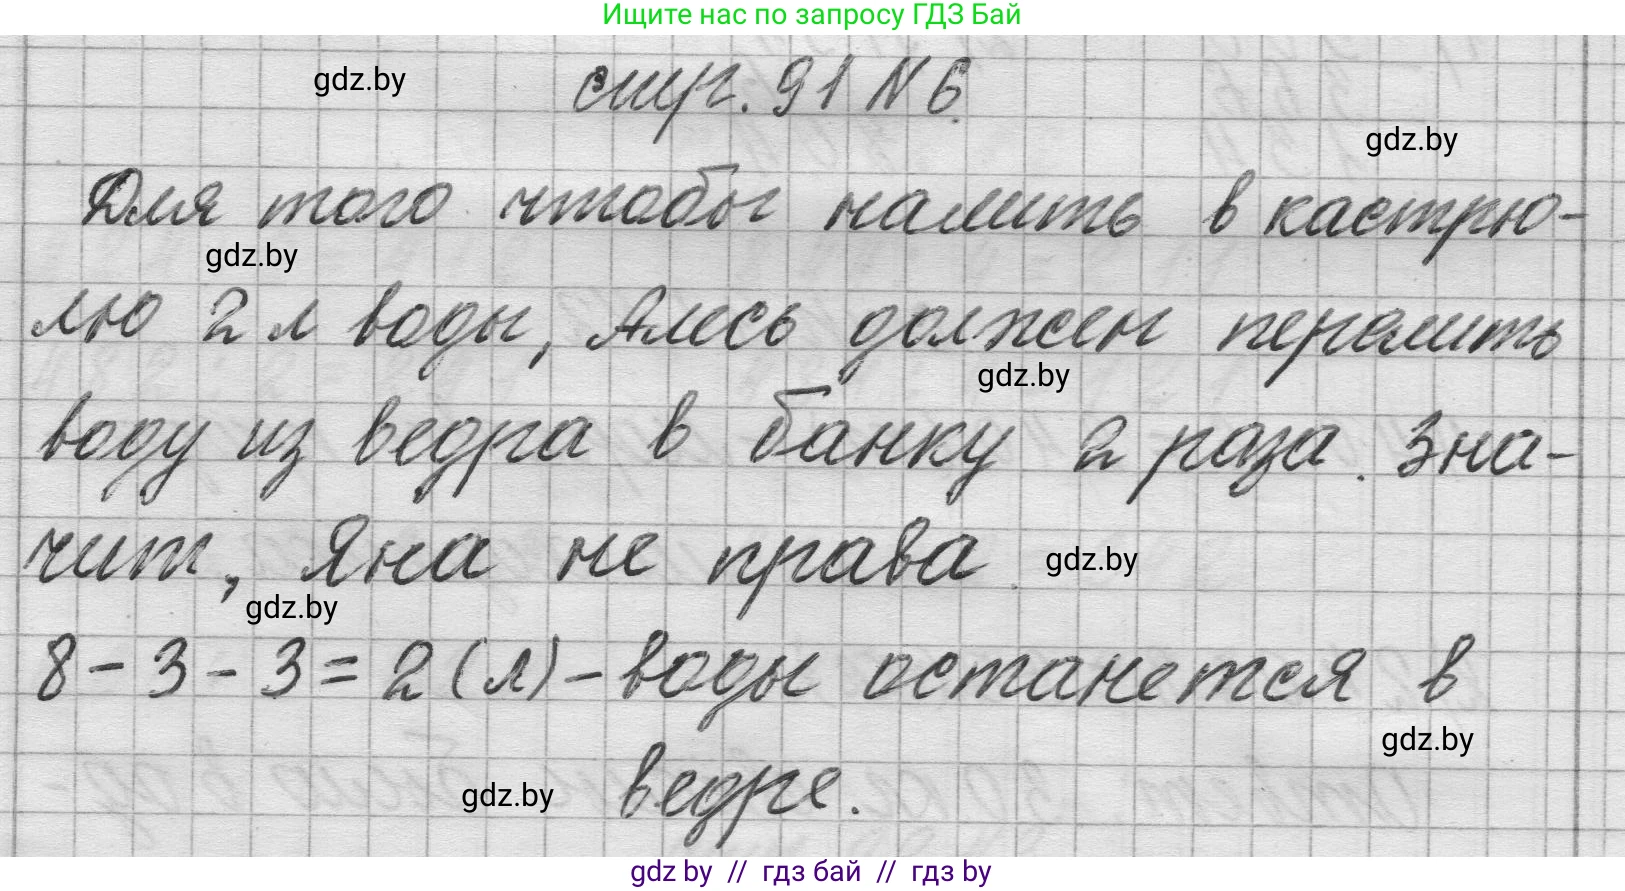 Ищите нас по запросу ГДЗ Бай
gdz.by
стр. 91 N 6.
gdz.by
Для того чтобы налить в кастрю-
gdz.by
лю 2 л воды, Алесь должен перелить
gdz.by
воду из ведра в банку 2 раза. Зна-
чит, Яна не права.
gdz.by
gdz.by
8 - 3 - 3 = 2 (л) - воды останется в
gdz.by
gdz.by
ведре.
gdz by // гдз бай // гдз by